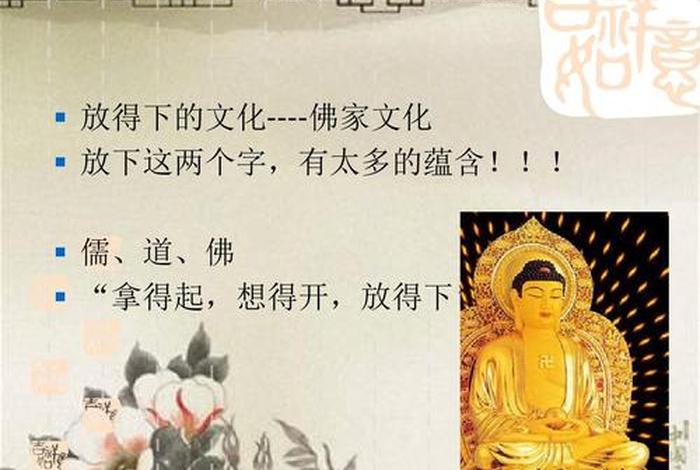 吉祥如意
放得下的文化----佛家文化
放下这两个字，有太多的蕴含！！！
儒、道、佛
“拿得起，想得开，放得下